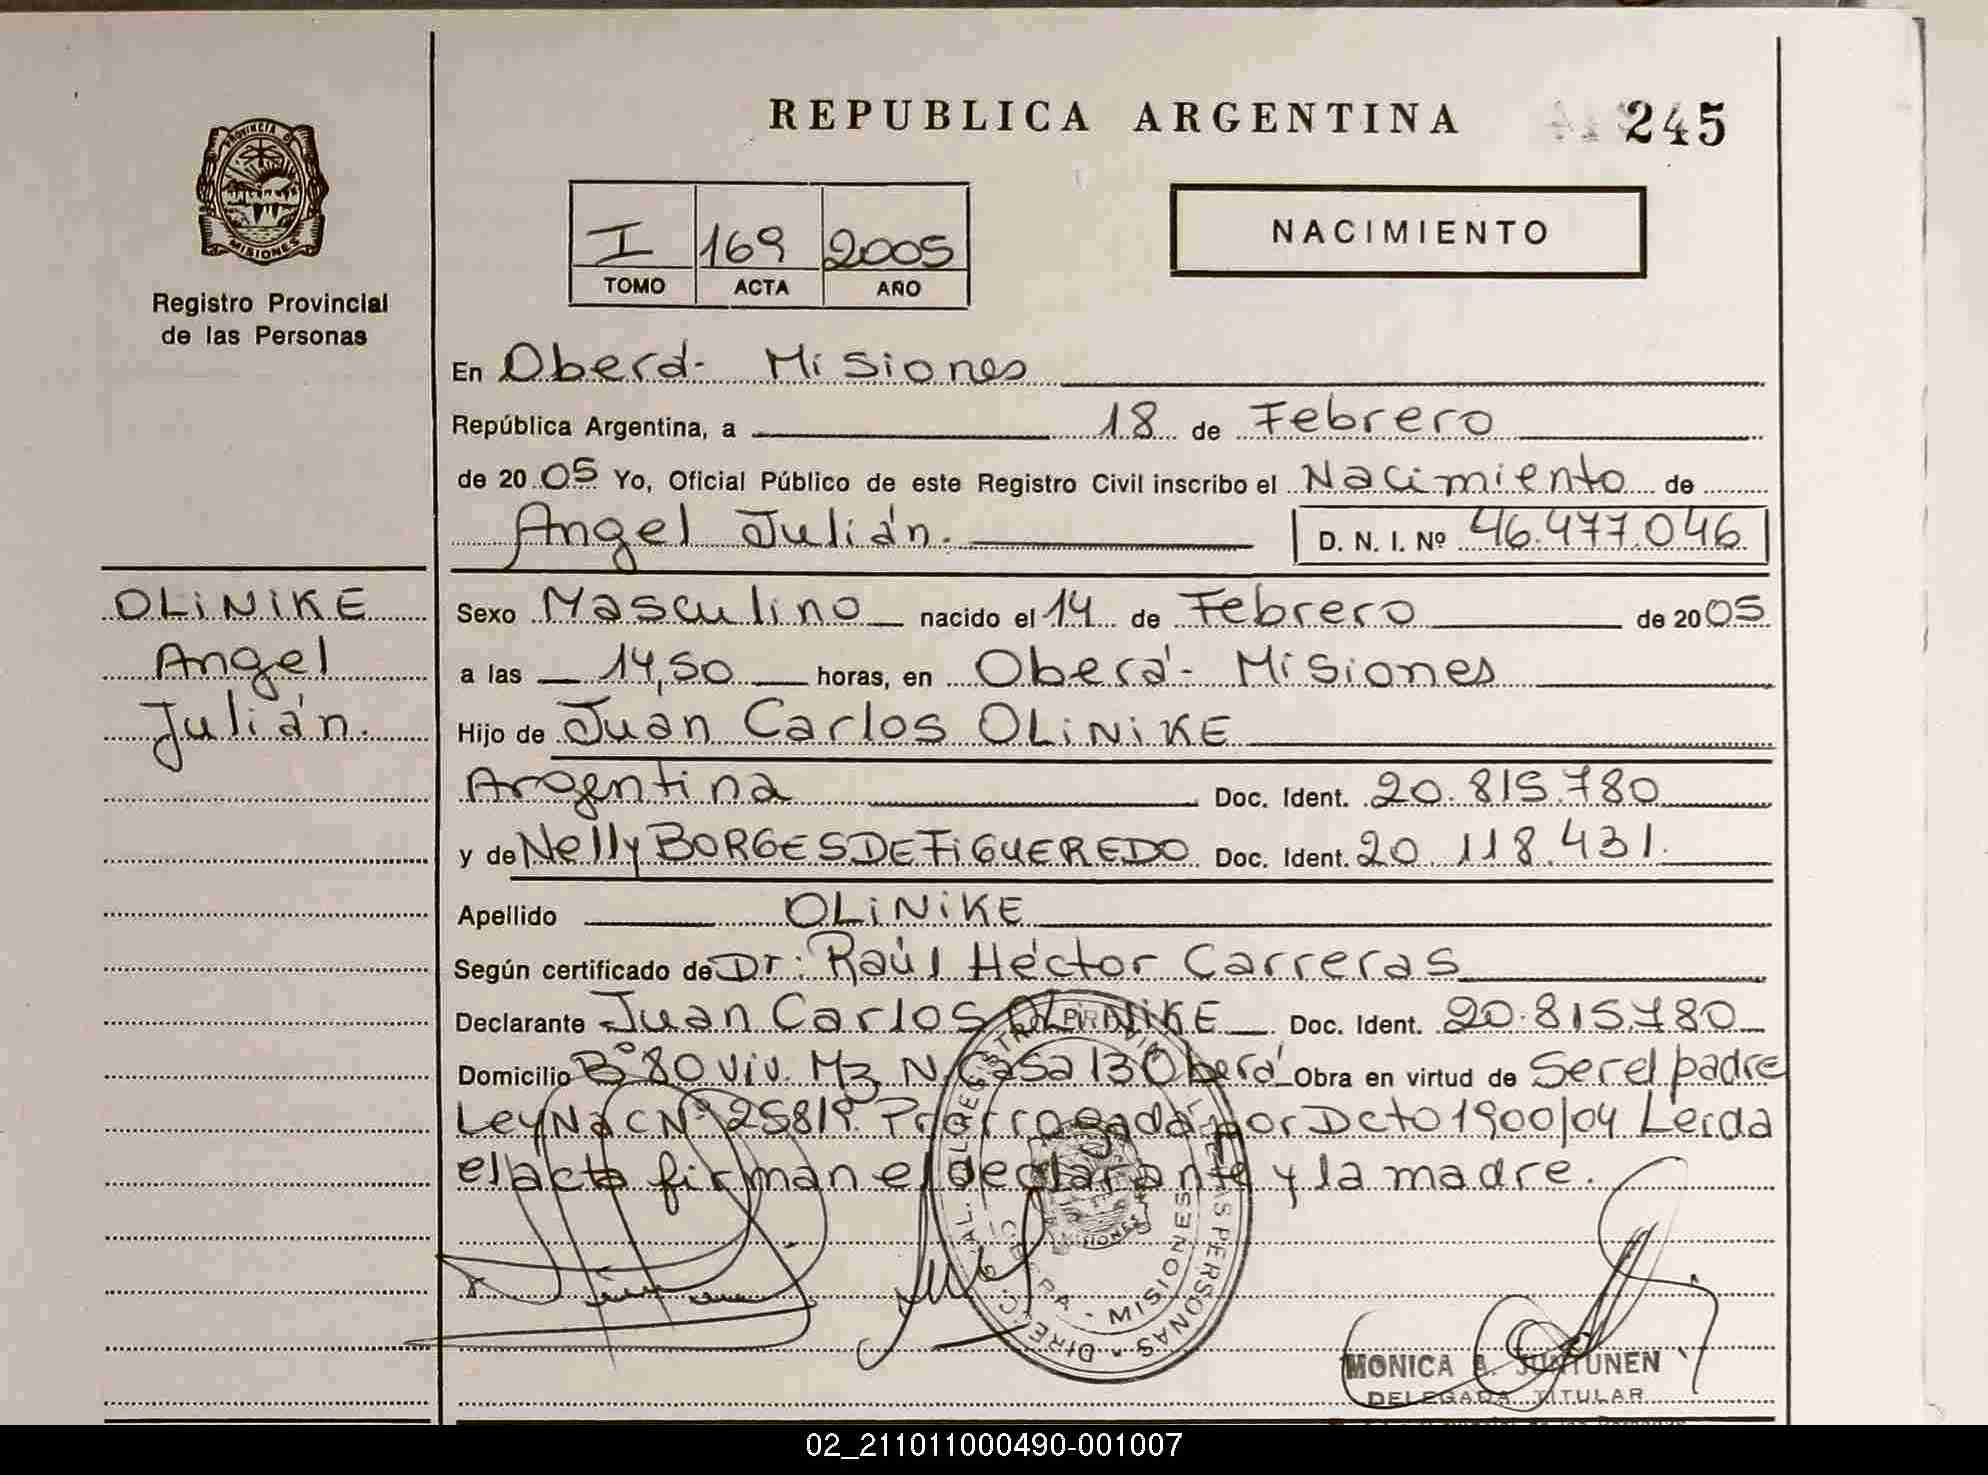 REPUBLICA ARGENTINA
245
PROVINCIA DE
MISIONES
Registro Provincial
de las Personas
I 169 2005
TOMO ACTA AÑO
NACIMIENTO
En Oberá- Misiones
República Argentina, a 18 de Febrero
de 2005 Yo, Oficial Público de este Registro Civil inscribo el Nacimiento de
Angel Julián. D. N. I. Nº 46.477.046
OLiNiKE
Angel
Julián.
Sexo Masculino nacido el 14 de Febrero de 2005
a las 14,50 horas, en Oberá- Misiones
Hijo de Juan Carlos OLiNiKE
Argentina Doc. Ident. 20.815.780
y de Nelly BORGES DE FiGUEREDO Doc. Ident. 20.118.431.
Apellido OLiNiKE
Según certificado de Dr: Raúl Héctor Carreras
Declarante Juan Carlos OLiNiKE Doc. Ident. 20.815.780
Domicilio Bº 80 viv. Mz N Casa 13 Oberá Obra en virtud de Ser el padre
Ley Nac Nº 25819 Prorrogada por Dcto 1900/04 Leida
el acta firman el declarante y la madre.
MISIONES
MONICA JUNTUNEN
DELEGADA TITULAR
02_211011000490-001007